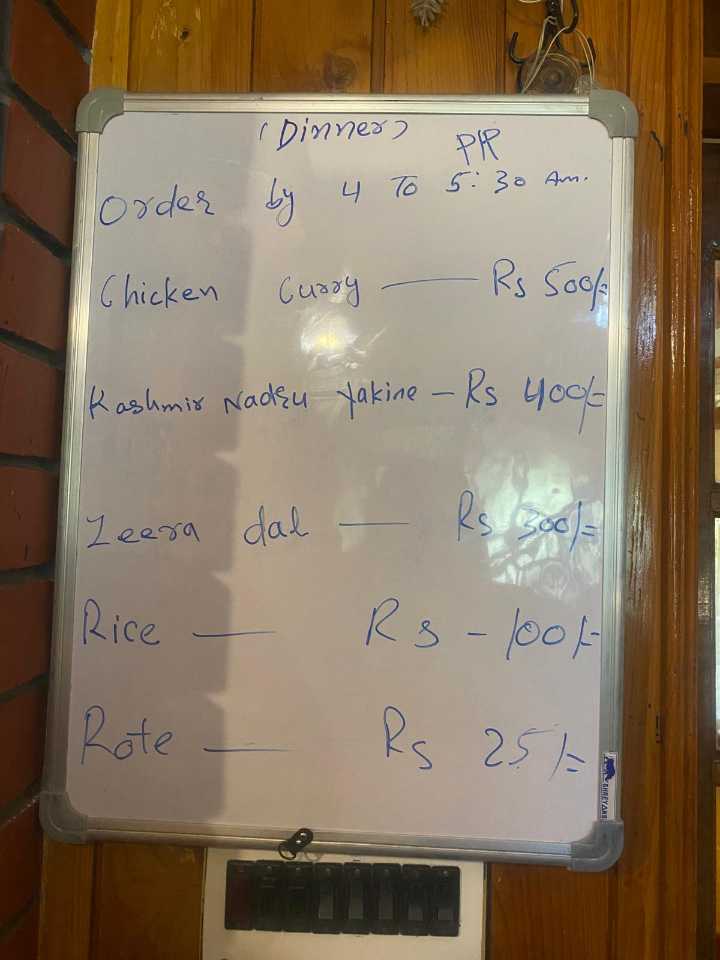 (Dinner)
P/P
Order by 4 To 5:30 Am.
Chicken Curry — Rs 500/=
Kashmir Nadru Yakine — Rs 400/=
Zeera dal — Rs 300/=
Rice — Rs - 100/-
Rote — Rs 25/=
SHREYANSH